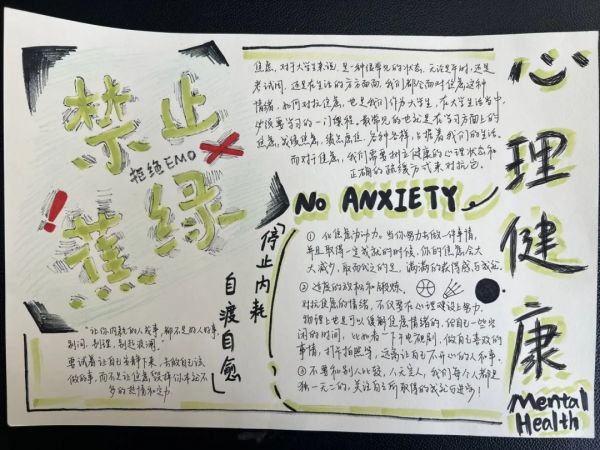 禁止
蕉绿
拒绝EMO
焦虑，对于大学生来说，是一种很常见的状态，无论是平时，还是
考试周，还是在生活的方方面面，我们都会面对焦虑这种
情绪，如何对抗焦虑，也是我们作为大学生，在大学生活当中
必须要学习的一门课程。最常见的也就是在学习方面上的
焦虑，成绩焦虑，绩点焦虑，各种各样，占据着我们的生活。
而对于焦虑，我们需要树立健康的心理状态和
正确的疏缓方式来对抗它。
NO ANXIETY
① 化焦虑为动力。当你努力去做一件事情，
并且取得一定成就的时候，你的焦虑会大
大减少，取而代之的是，满满的获得感与成就。
② 适度的放松和锻炼
对抗焦虑的情绪，不仅要在心理建设上努力，
物理上也是可以缓解焦虑情绪的，给自己一些空
闲的时间，比如看一下午电视剧，做自己喜欢的
事情，打卡拍照等，远离让自己不开心的人和事。
③ 不要和别人比较，人无完人，我们每个人都是
独一无二的，关注自己所取得的成就与进步！
停止内耗
自渡自愈
"让你内耗的人或事，都不是好人好事，
别问，别理，别起波澜。"
要试着让自己安静下来，去做自己该
做的事，而不是让焦虑毁掉你本就不
多的热情和定力
心理健康
Mental
Health